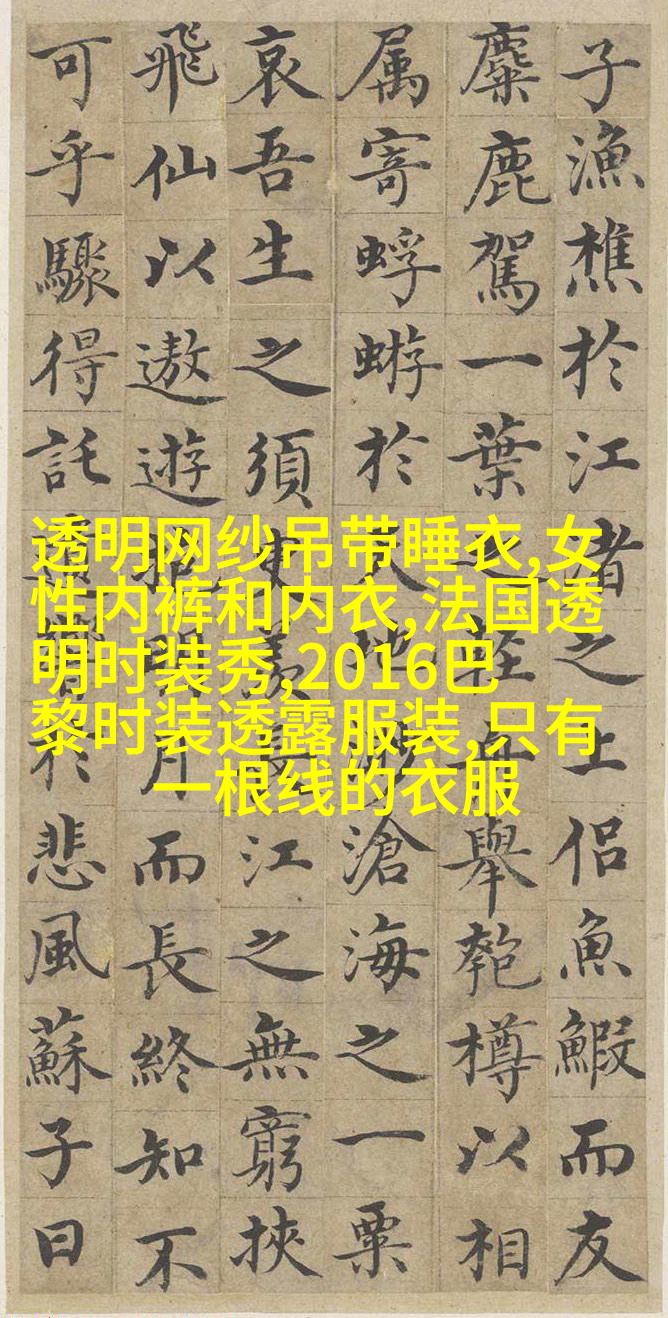 子漁樵於江渚之上侶魚鰕而友
麋鹿駕一葉之舟舉匏樽以相
属寄蜉蝣於天地眇滄海之一粟
哀吾生之須臾羨長江之無窮挾
飛仙以遨遊抱明月而長終知不
可乎驟得託遺響於悲風蘇子曰
透明网纱吊带睡衣,女
性内裤和内衣,法国透
明时装秀,2016巴
黎时装透露服装,只有
一根线的衣服